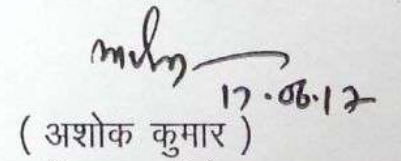 17.06.17
( अशोक कुमार )